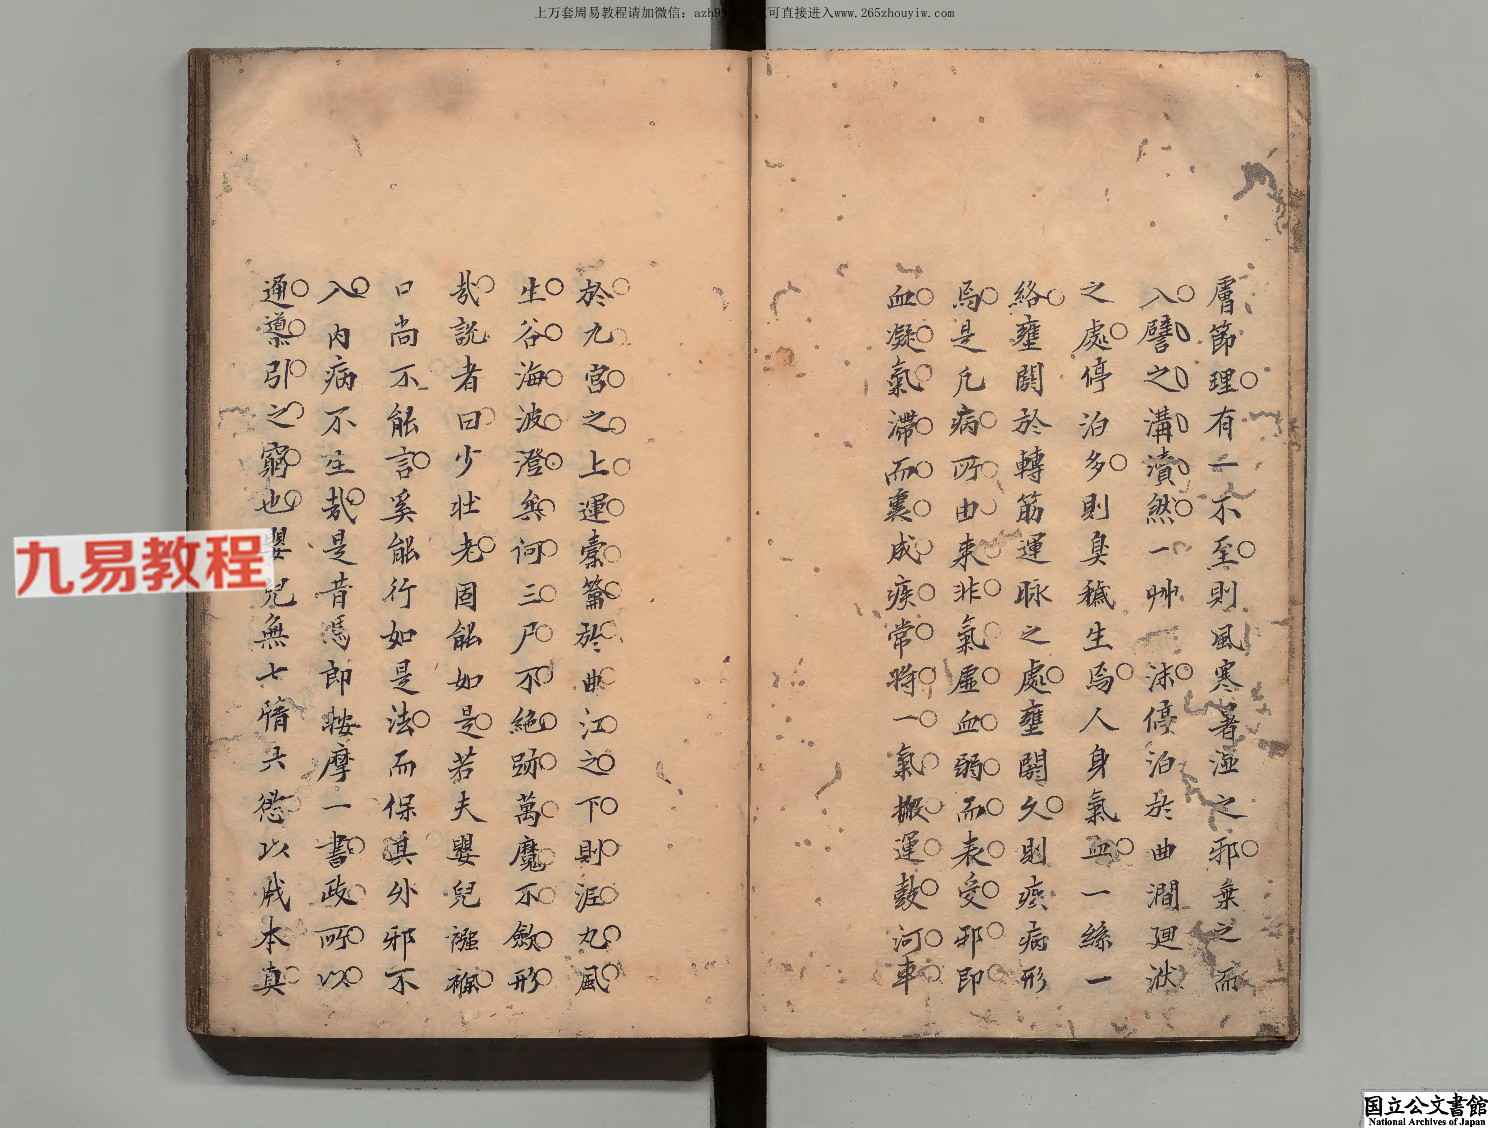 上万套周易教程请加微信：azh9 可直接进入www.265zhouyiw.com
膚節理有一不至則風寒暑溼之邪乗之而
入譬之溝瀆然一艸一沫停泊於曲澗廻洑
之處停泊多則臭穢生焉人身氣血一絲一
絡壅閼於轉筋運脉之處壅閼久則癀病形
焉是凢病所由来非氣虚血弱而表受邪即
血凝氣滯而裏成疾常將一氣搬運鼓河車
於九宮之上運槖籥於曲江之下則涯丸風
生谷海波澄無何三尸不絶跡萬魔不歛形
哉說者曰少壮老固能如是若夫嬰兒襁褓
口尚不能言奚能行如是法而保真外邪不
入内病不生哉是昔馮郎按摩一書政所以
通導引之窮也嬰兒無七情六慾以戕本真
九易教程
国立公文書館
National Archives of Japan